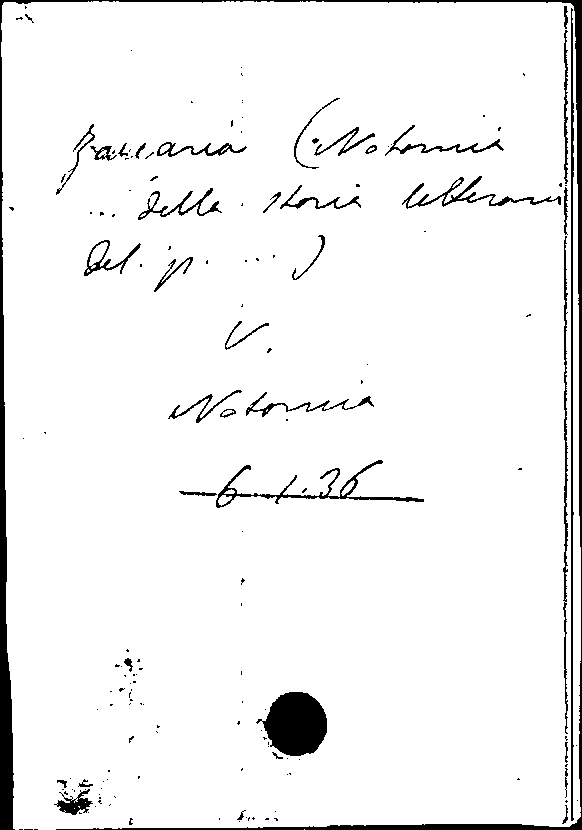 Zaccaria (Notomia
... della storia letteraria
del p. ... )
V.
Notomia
6.1.36